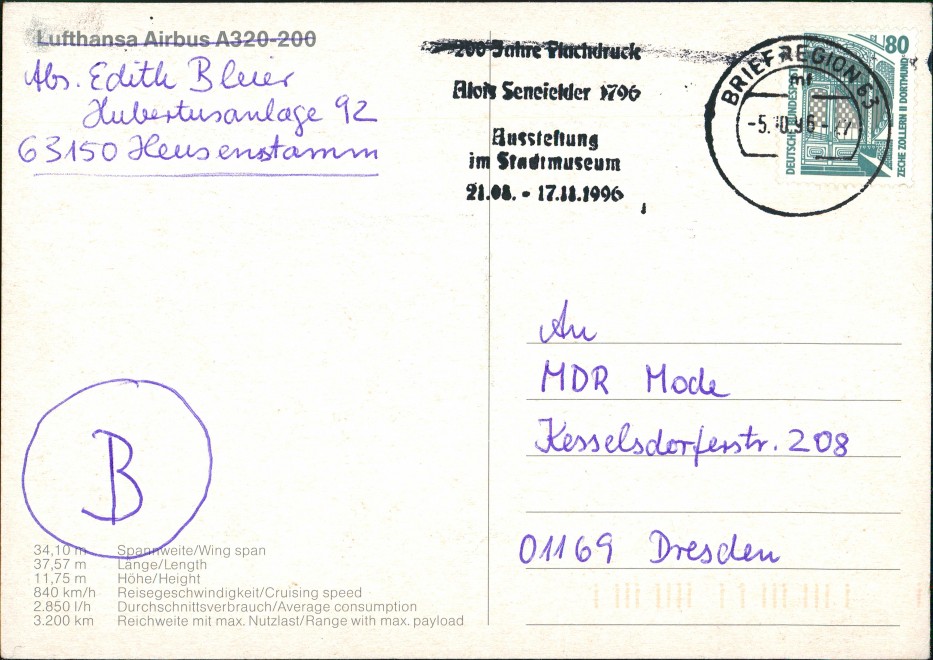 Lufthansa Airbus A320-200
Abs. Edith Bleier
Hubertusanlage 92
63150 Heusenstamm
200 Jahre Flachdruck
Alois Senefelder 1796
Ausstellung
im Stadtmuseum
21.08. - 17.11.1996
BRIEFREGION 63
mf
-5.10.96-
80
DEUTSCHE BUNDESPOST
ZECHE ZOLLERN II DORTMUND
An
MDR Mode
Kesselsdorferstr. 208
01169 Dresden
B
34,10 m Spannweite/Wing span
37,57 m Länge/Length
11,75 m Höhe/Height
840 km/h Reisegeschwindigkeit/Cruising speed
2.850 l/h Durchschnittsverbrauch/Average consumption
3.200 km Reichweite mit max. Nutzlast/Range with max. payload